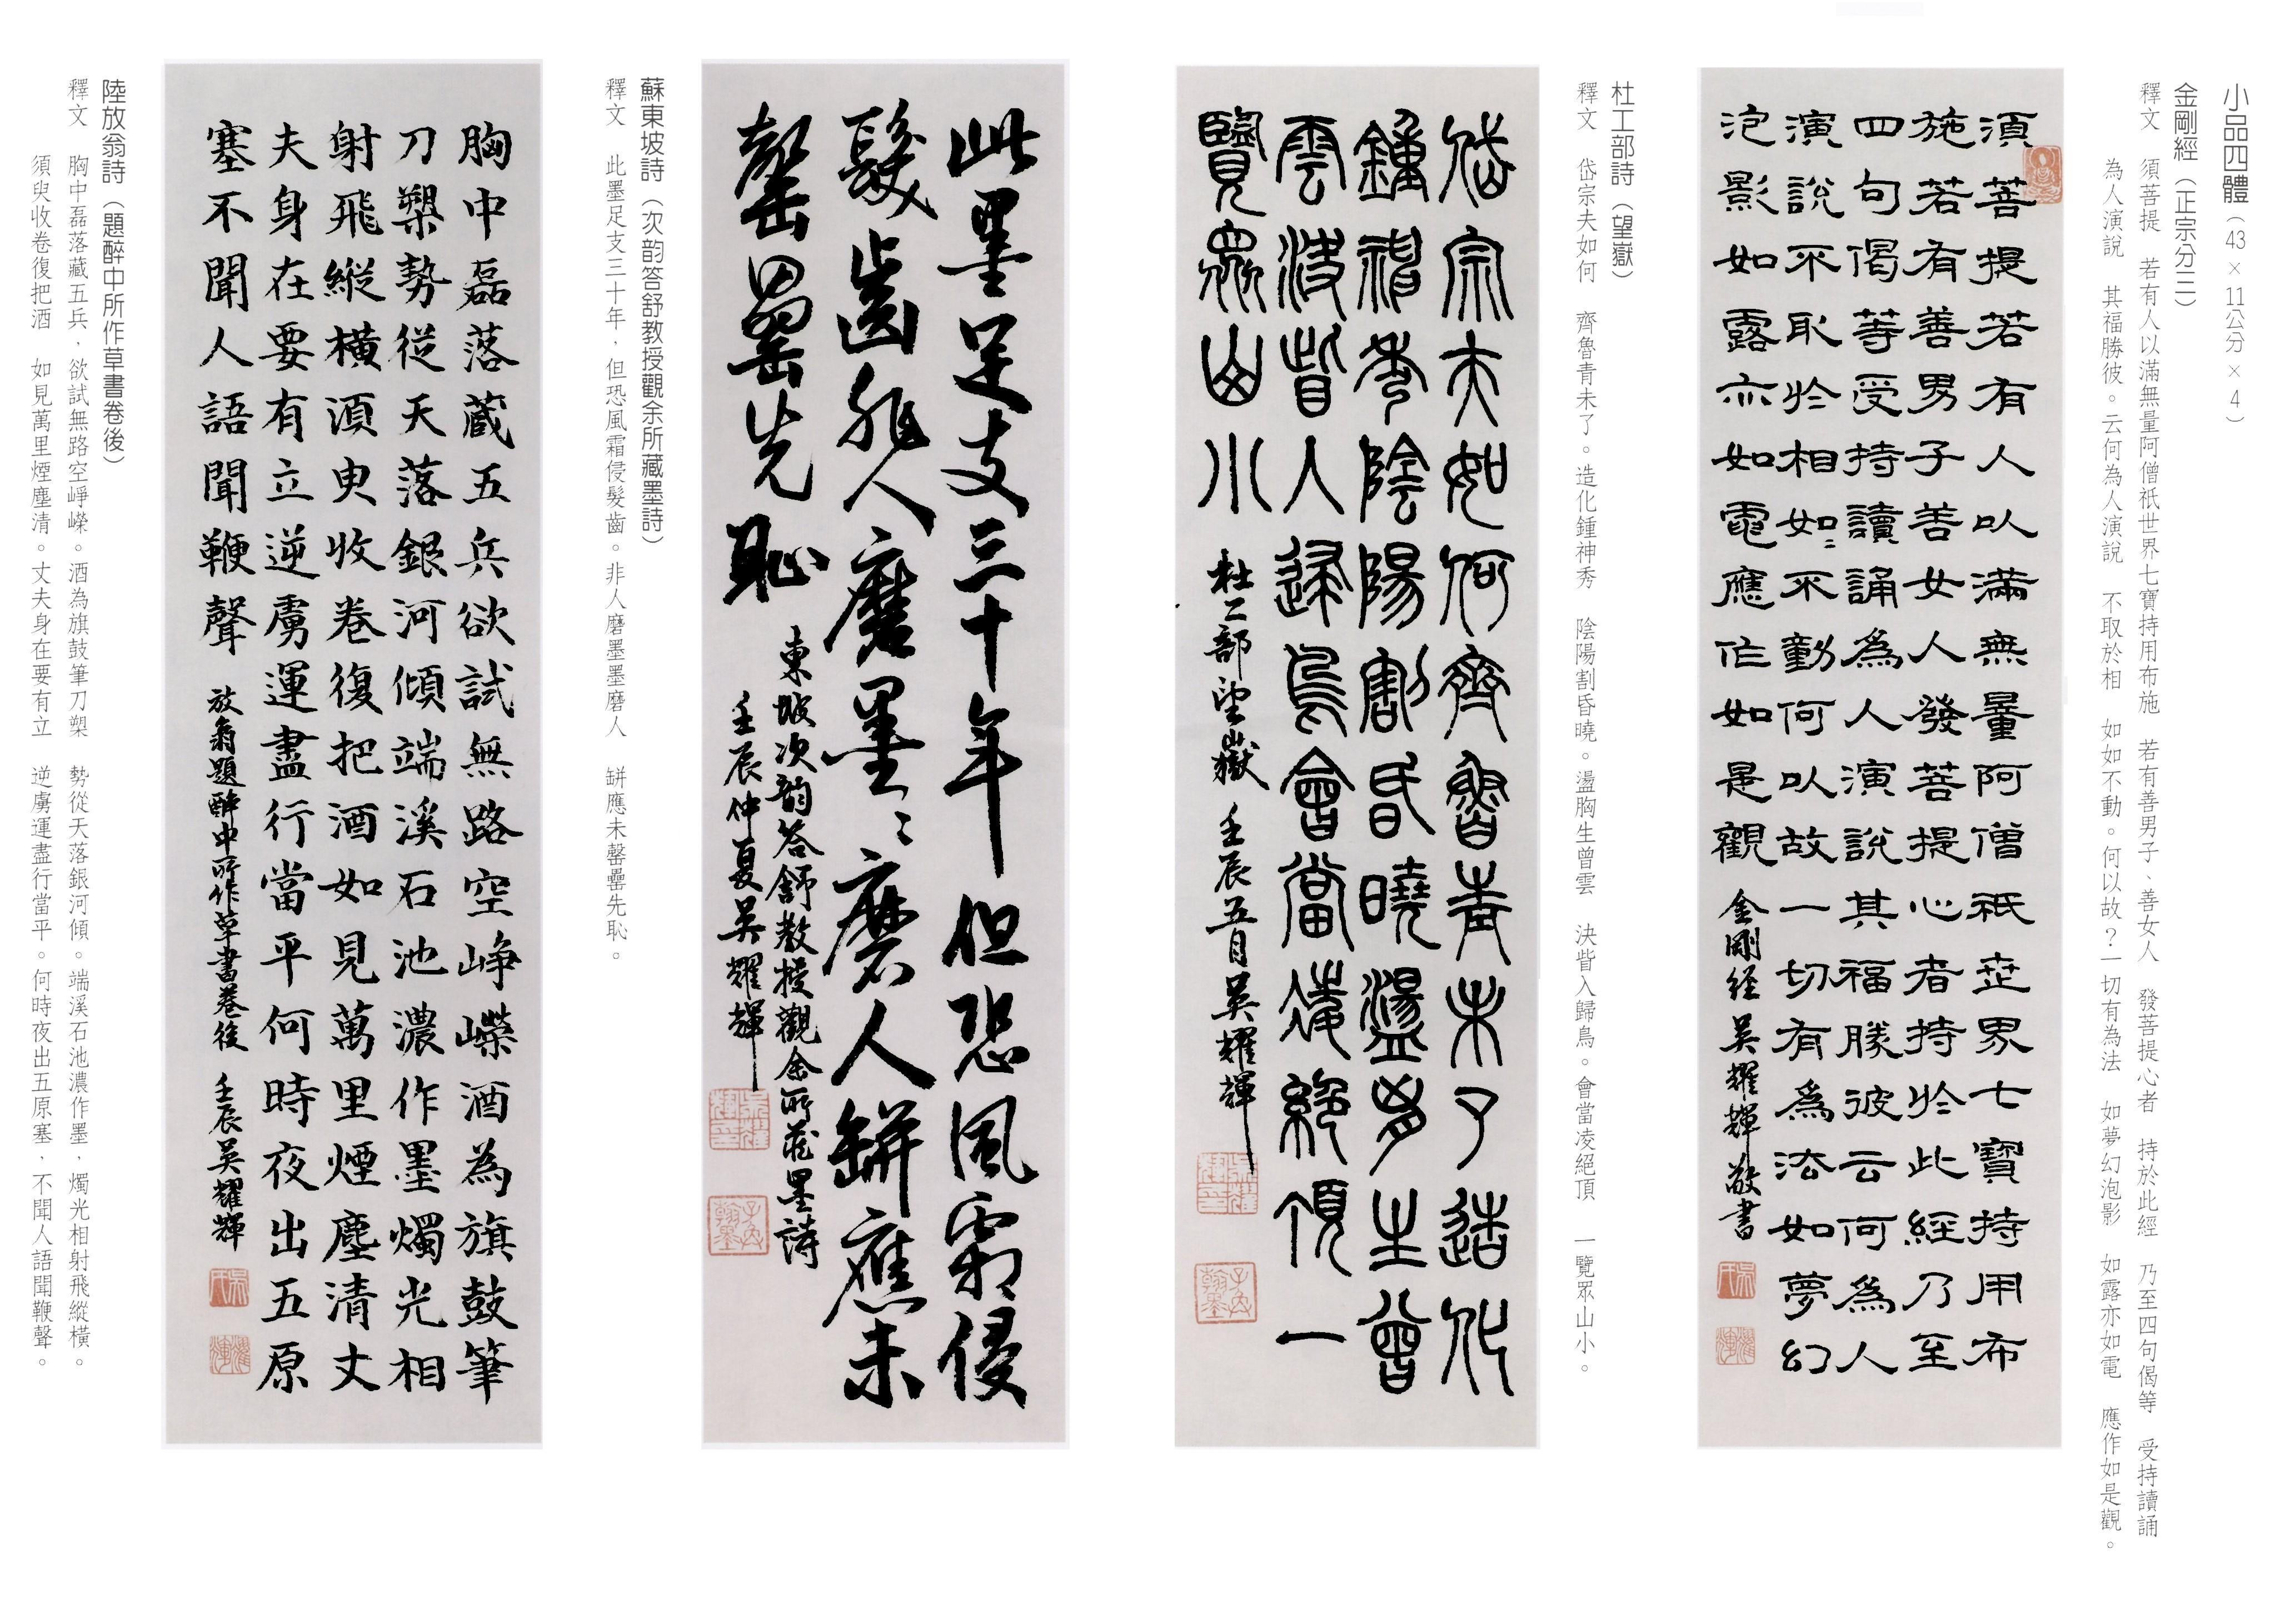 小品四體（43×11公分×4）
金剛經（正宗分三）
釋文　須菩提　若有人以滿無量阿僧祇世界七寶持用布施　若有善男子、善女人　發菩提心者　持於此經　乃至四句偈等　受持讀誦
為人演說　其福勝彼。云何為人演說　不取於相　如如不動。何以故？一切有為法　如夢幻泡影　如露亦如電　應作如是觀。
須菩提若有人以滿無量阿僧祇世界七寶持用布
施若有善男子善女人發菩提心者持於此經乃至
四句偈等受持讀誦為人演說其福勝彼云何為人
演說不取於相如〻不動何以故一切有為法如夢幻
泡影如露亦如電應作如是觀　金剛經　吳耀輝敬書
杜工部詩（望嶽）
釋文　岱宗夫如何　齊魯青未了。造化鍾神秀　陰陽割昏曉。盪胸生曾雲　決眥入歸鳥。會當凌絕頂　一覽眾山小。
岱宗夫如何齊魯青未了造化
鍾神秀陰陽割昏曉盪胸生曾
雲決眥入歸鳥會當凌絕頂一
覽眾山小　杜工部望嶽　壬辰五月吳耀輝
蘇東坡詩（次韵答舒教授觀余所藏墨詩）
釋文　此墨足支三十年，但恐風霜侵髮齒。非人磨墨墨磨人　缾應未罄罍先恥。
此墨足支三十年但恐風霜侵
髮齒非人磨墨〻磨人缾應未
罄罍先恥
東坡次韵答舒教授觀余所藏墨詩
壬辰仲夏吳耀輝
陸放翁詩（題醉中所作草書卷後）
釋文　胸中磊落藏五兵，欲試無路空崢嶸。酒為旗鼓筆刀槊　勢從天落銀河傾。端溪石池濃作墨，燭光相射飛縱橫。
須臾收卷復把酒　如見萬里煙塵清。丈夫身在要有立　逆虜運盡行當平。何時夜出五原塞，不聞人語聞鞭聲。
胸中磊落藏五兵欲試無路空崢嶸酒為旗鼓筆
刀槊勢從天落銀河傾端溪石池濃作墨燭光相
射飛縱橫須臾收卷復把酒如見萬里煙塵清丈
夫身在要有立逆虜運盡行當平何時夜出五原
塞不聞人語聞鞭聲　放翁題醉中所作草書卷後　壬辰吳耀輝